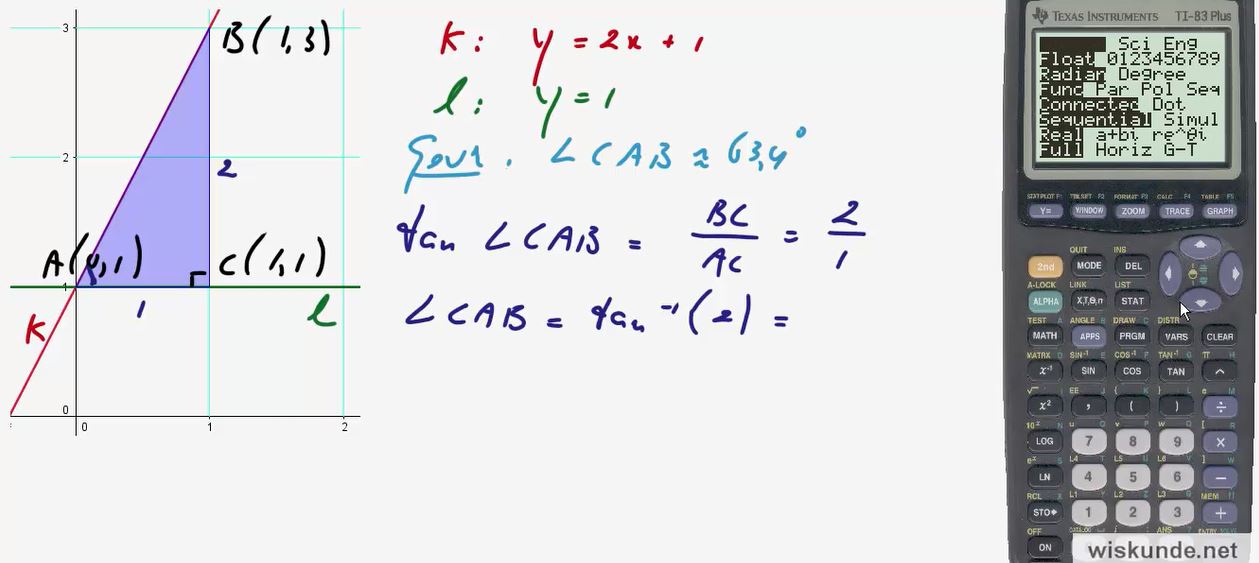 3
B(1,3)
2
2
A(0,1)
C(1,1)
1
1
k
l
0
0
1
2
k: y = 2x + 1
l: y = 1
Geur. ∠CAB ≈ 63,4°
tan ∠CAB = BC/AC = 2/1
∠CAB = tan⁻¹(2) =
TEXAS INSTRUMENTS TI-83 Plus
Sci Eng
Float 0123456789
Radian Degree
Func Par Pol Seq
Connected Dot
Sequential Simul
Real a+bi re^θi
Full Horiz G-T
STAT PLOT F1 TBLSET F2 FORMAT F3 CALC F4 TABLE F5
Y= WINDOW ZOOM TRACE GRAPH
QUIT INS
2nd MODE DEL
A-LOCK LINK LIST
ALPHA X,T,θ,n STAT
TEST A ANGLE B DRAW C DISTR
MATH APPS PRGM VARS CLEAR
MATRX D SIN⁻¹ E COS⁻¹ F TAN⁻¹ G π H
x⁻¹ SIN COS TAN ^
√ I EE J { K } L e M
x² , ( ) ÷
10ˣ N u O v P w Q [ R
LOG 7 8 9 ×
eˣ S L4 T L5 U L6 V ] W
LN 4 5 6 −
RCL X L1 Y L2 Z L3 θ MEM "
STO▸ 1 2 3 +
OFF
ON
wiskunde.net